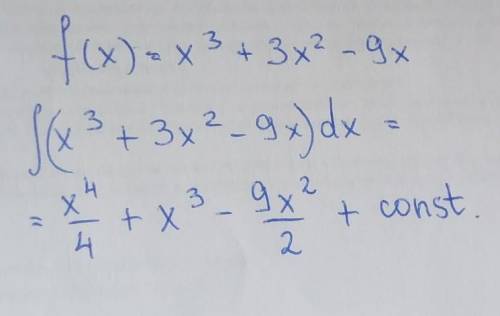 f(x) = x³ + 3x² - 9x
∫(x³ + 3x² - 9x)dx =
= x⁴/4 + x³ - 9x²/2 + const.